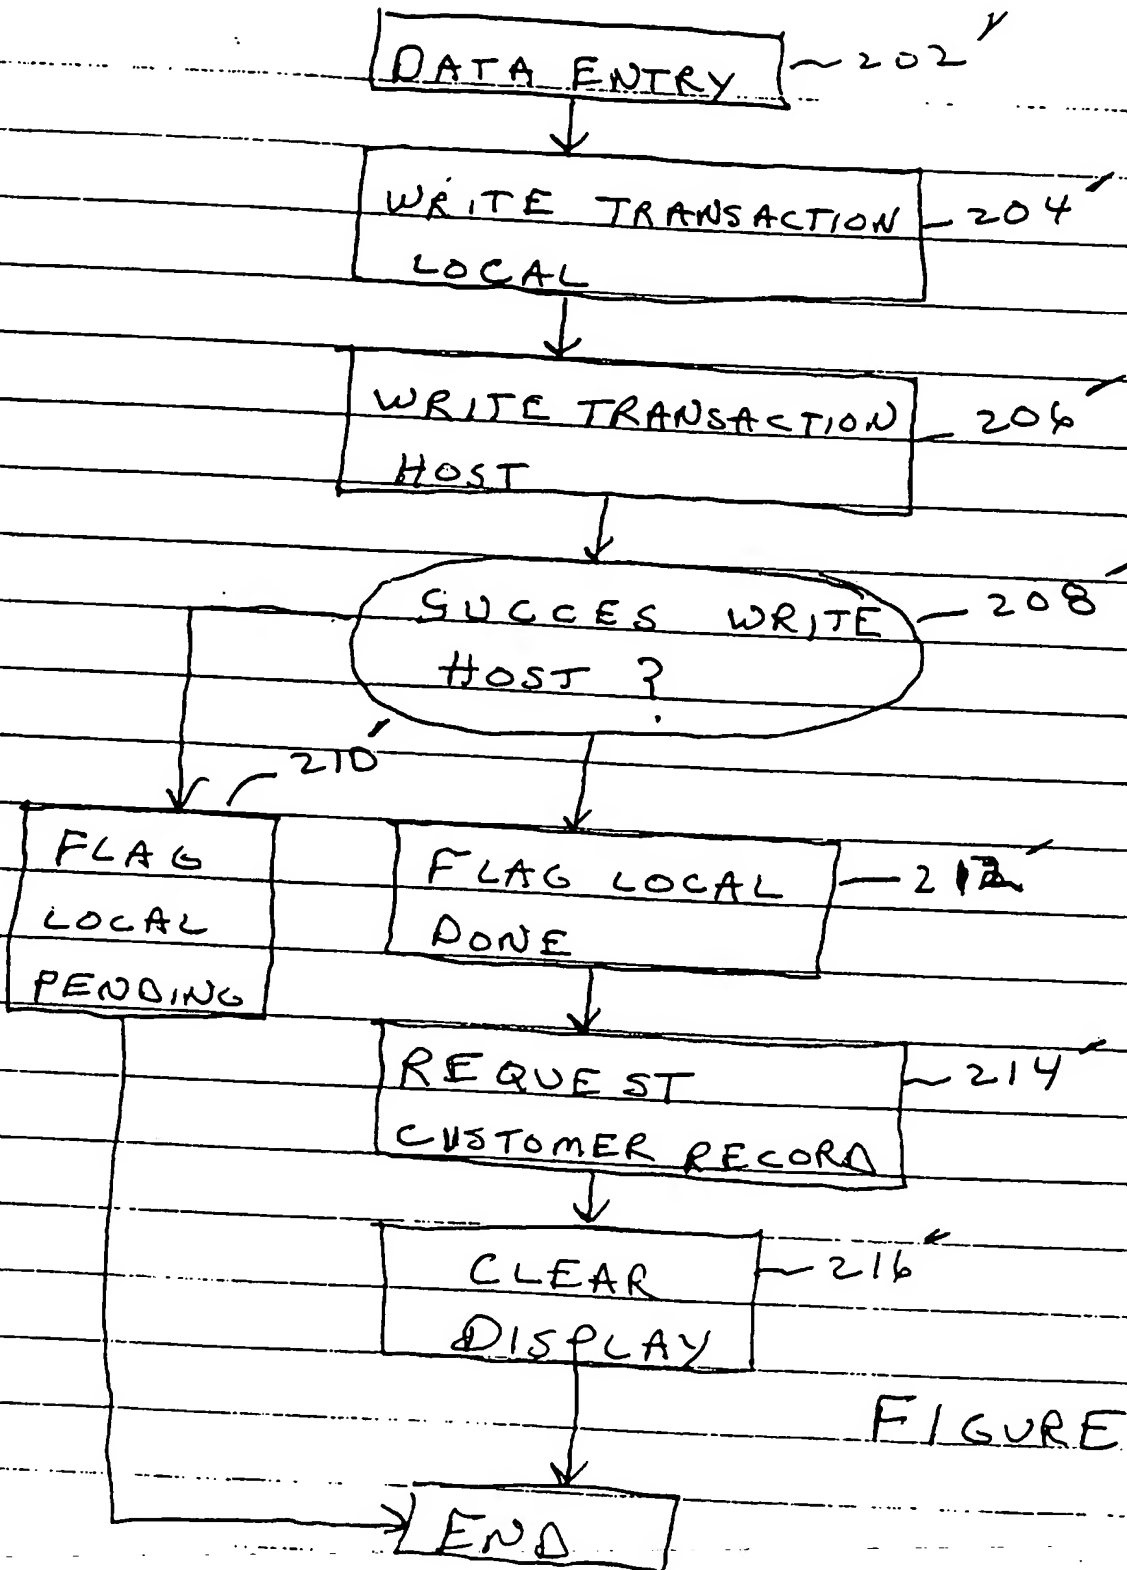 DATA ENTRY
202'
WRITE TRANSACTION
LOCAL
204'
WRITE TRANSACTION
HOST
206'
SUCCES WRITE
HOST ?
208'
210'
FLAG
LOCAL
PENDING
FLAG LOCAL
DONE
212'
REQUEST
CUSTOMER RECORD
214'
CLEAR
DISPLAY
216'
FIGURE
END